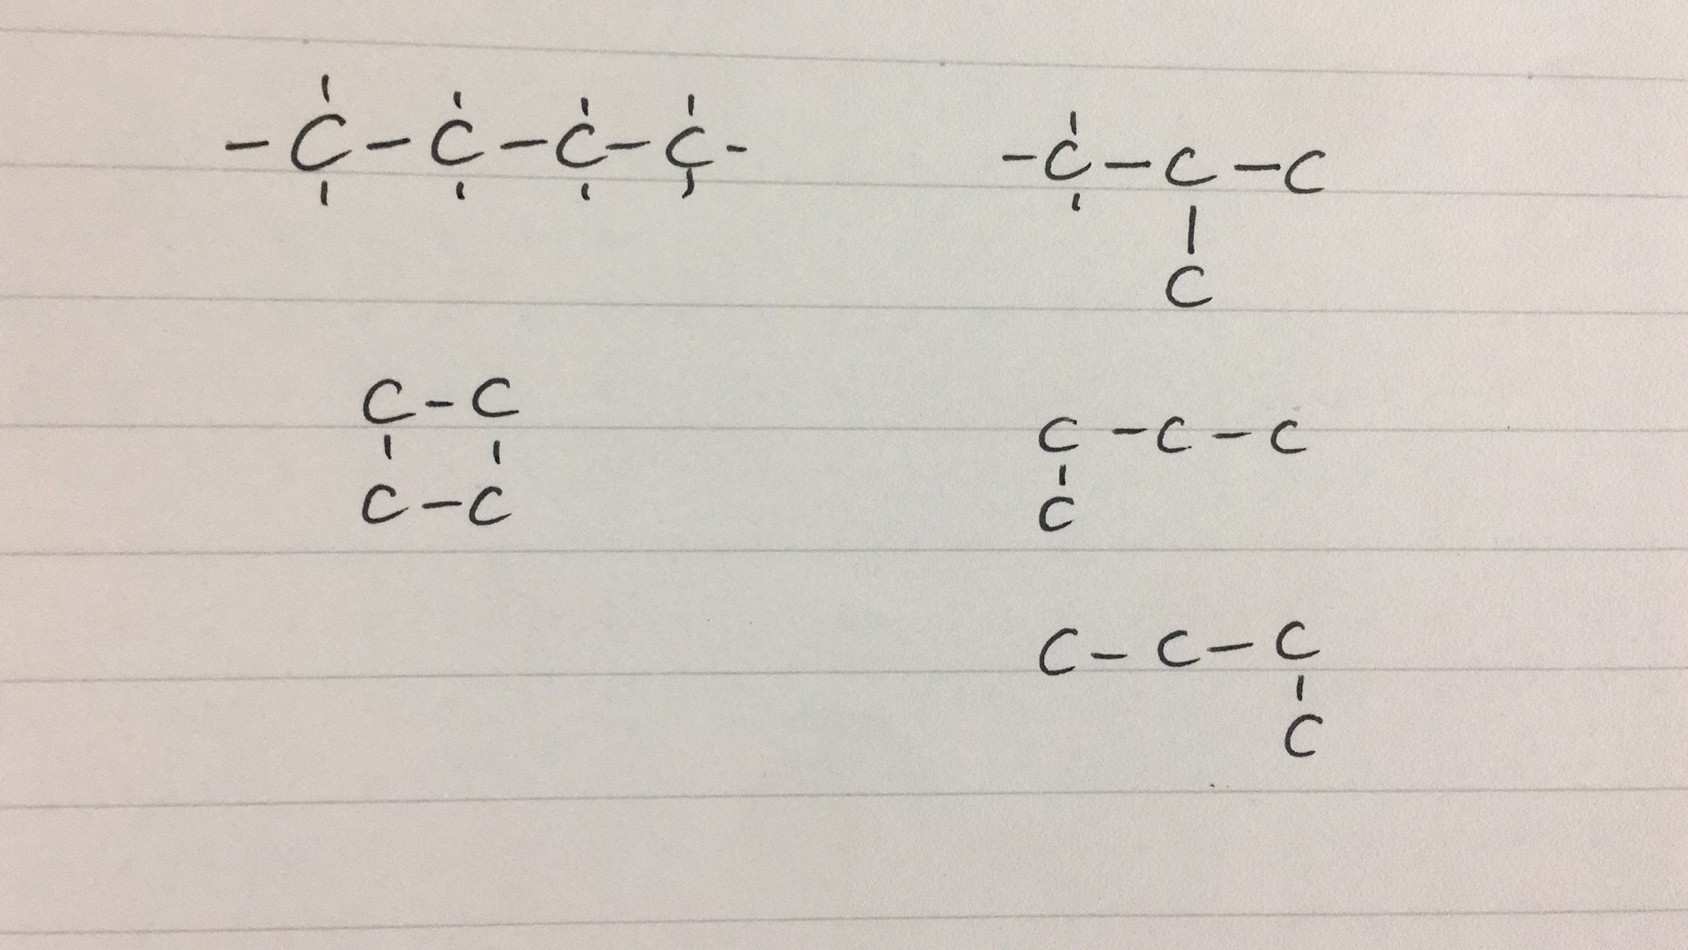 - C - C - C - C -
- C - C - C
C
C - C
C - C
C - C - C
C
C - C - C
C